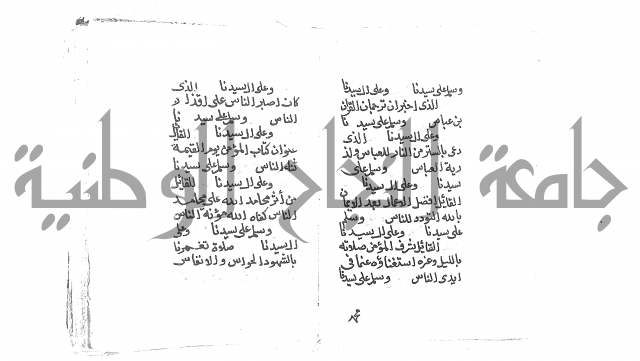 وسلم على سيدنا وعلى ال سيدنا
الذى اخبر ان ترجمان القران
بن عباس وسلم على سيدنا
وعلى ال سيدنا الذى
دعى بالستر من النار للعباس ولذ
رية العباس وسلم على
سيدنا وعلى ال سيدنا
القائل افضل الاعمال بعد الايمان
بالله التودد للناس وسلم
على سيدنا وعلى ال سيدنا
القائل شرف المؤمن صلاته
بالليل وعزه استغناؤه عما فى
ايدى الناس وسلم على سيدنا
وعلى ال سيدنا الذى
كان اصبر الناس على اقذار
الناس وسلم على سيدنا
وعلى ال سيدنا القائل
عنوان كتاب المؤمن يوم القيمة
ثناء الناس وسلم على سيدنا
وعلى ال سيدنا القائل
من أثر محامد الله على محامد
الناس كفاه الله مؤنة الناس
وسلم على سيدنا وعلى
ال سيدنا صلاة تغمرنا
بالشهود الحواس والانفاس
جامعة النجاح الوطنية